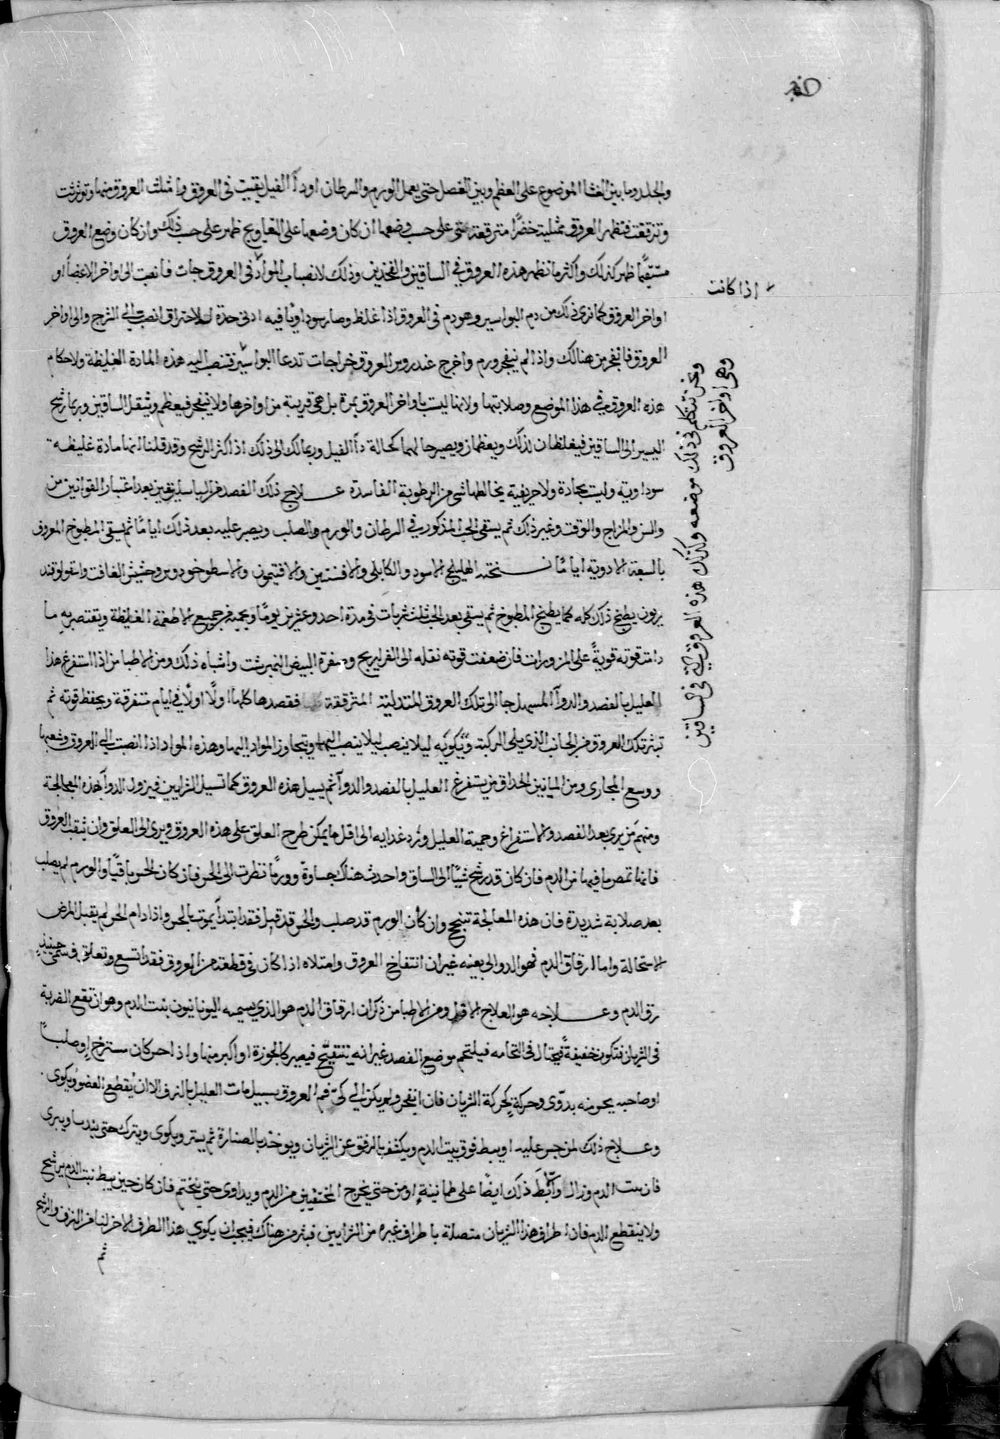 والجلد وما بين الغشا الموضوع على العظم وبين العضل حتى يعمل الورم والسرطان او دآ الفيل بقيت فى العروق وامتلت العروق منها وتوثرت
وتزقعت فتظهر العروق ممتلية خضرا متزقعة حتى على حسب وضعها ان كان وضعها على التعاويج ظهر على حسب ذلك وان كان وضع العروق
مستقيما ظهر كذلك واكثر ما تظهر هذه العروق فى الساقين والفخذين وذلك لانصباب المواد فى العروق جات فانصبت الى اواخر الاعضا او
اواخر العروق كما نرى ذلك من دم البواسير وهو دم فى العروق اذا غلظ وصار سوداويا فيه ادنى حدة للاحتراق انصب الى الشرج والى اواخر
العروق فانفجر من هنالك واذا لم ينفجر ورم واخرج عند روس العروق خراجات تدعا البواسير فتنصب اليه هذه المادة الغليظة ولاحكام
هذه العروق فى هذا الموضع وصلابتها ولانها ليست باواخر العروق بمرة بل هى قريبة من اواخرها ولا ينفجر فيعظم ويثقل الساقين وربما رشح
اليسير الى الساقين فيغلظان لذلك ويعظمان ويصير حالهما كحالة دآ الفيل وربما لك الى ذلك اذا كثر الرشح وقد قلنا انها مادة غليظة
سوداوية وليست بحادة ولا حريفية يخالطها شى من الرطوبة الفاسدة علاج ذلك الفصد من الباسليقين بعد اعتبار القوانين من
والسن والمزاج والوقت وغير ذلك ثم يسقى الحب المذكور فى السرطان والورم والصلب ويصبر عليه بعد ذلك اياما ثم يسقى المطبوخ المعروف
بالسبعة الادوية اياما نسخته الهليلج الاسود والكابلى والافسنتين والافتيمون والاسطوخودوس وحشيش الغافت واسقولوقند
ريون يطبخ ذلك كله كما يطبخ المطبوخ ثم يسقى بعد الحب ثلث شربات فى مدة احد وعشرين يوما ويحميه من جميع الاطعمة الغليظة ويقتصر به ما
دامت قوته قوية على المزورات فان ضعفت قوته نقله الى الفراريج وصفرة البيض النيمبرشت واشباه ذلك ومن الاطبا من اذا استفرغ هذا
العليل بالفصد والدوآ المسهل جا الى تلك العروق المتدلية المتزقعة فقصدها كلها اولا اولا فى ايام متفرقة ويحفظ قوته ثم
تبتر تلك العروق من الجانب الذى يلى الركبة ويكويه ليلا ينصب ليلا ينصب اليها وتتجاوز المواد اليها وهذه المواد اذا انصبت الى العروق وسعها
ووسع المجارى ومن المايين الحذاق من يستفرغ العليل بالفصد والدوآ ثم يسيل هذه العروق كما تسيل الشرايين فيزول الدوآ بهذه المعالجة
ومنهم من يرى بعد الفصد والاستفراغ وحمية العليل ورد غدايه الى اقل ما يمكن طرح العلق على هذه العروق ويرى الى العلق وان ثقبت العروق
فانما تمص ما فيها من الدم فان كان قد رشح شيا الى الساق واحدث هناك جساوة وورما نظرت الى الحس فان كان الحس باقيا والورم لم يصلب
بعد صلابة شديدة فان هذه المعالجة تنجح وان كان الورم قد صلب والحس قد قبل فقد ابتدآ يموت بالحس واذا دام الحس لم يقبل المرض
لاستحالة واما ارقاق الدم فهو الدوالى بعينه غير ان انتفاخ العروق وامتلاه اذا كان فى قطعة من العروق فقد اتسع وتعلق فسمى حينيذ
رق الدم وعلاجه هو العلاج الاول ومن الاطبا من ذكر ان ارقاق الدم هو الذى يسميه اليونانيون بنت الدم وهو ان تقع الضربة
فى الشريان فتكون خفيفة فيحتال فى التحامه فيلتحم موضع الفصد غير انه ينتفخ فيصير كالجوزة او اكبر منها واذا حس كان مسترخ او صلب
او صاحبه يحس منه بدوى وحركة كحركة الشريان فان انفجر ولم يكن الى كى فم العروق سبيل مات العليل بالنزف الا ان يقطع العضو ويكوى
وعلاج ذلك لمن جسر عليه ا ويبط فوق بيت الدم ويكشف بالرفق عن الشريان ويوخذ بالصنارة ثم يبتر ويكوى ويترك حتى يندمل ويبرى
فان بنت الدم وزال والا بط ذلك ايضا على طمانينة او من حتى يخرج المختبى من الدم ويداوى حتى يختم فان كان حين يبط نبت الدم يرشح
ولا ينقطع الدم فان اطراف هذا الشريان متصلة باطراف غيره من الشرايين فبتر من هناك فيجب ان يكوى هذا الطرف الاخر لنا من النزف والرشح
ثم
اذا كانت
ونحن نتكلم فى ذلك موضعه وكذلك هذه العروق التى فى الساقين
وهى اواخر العروق